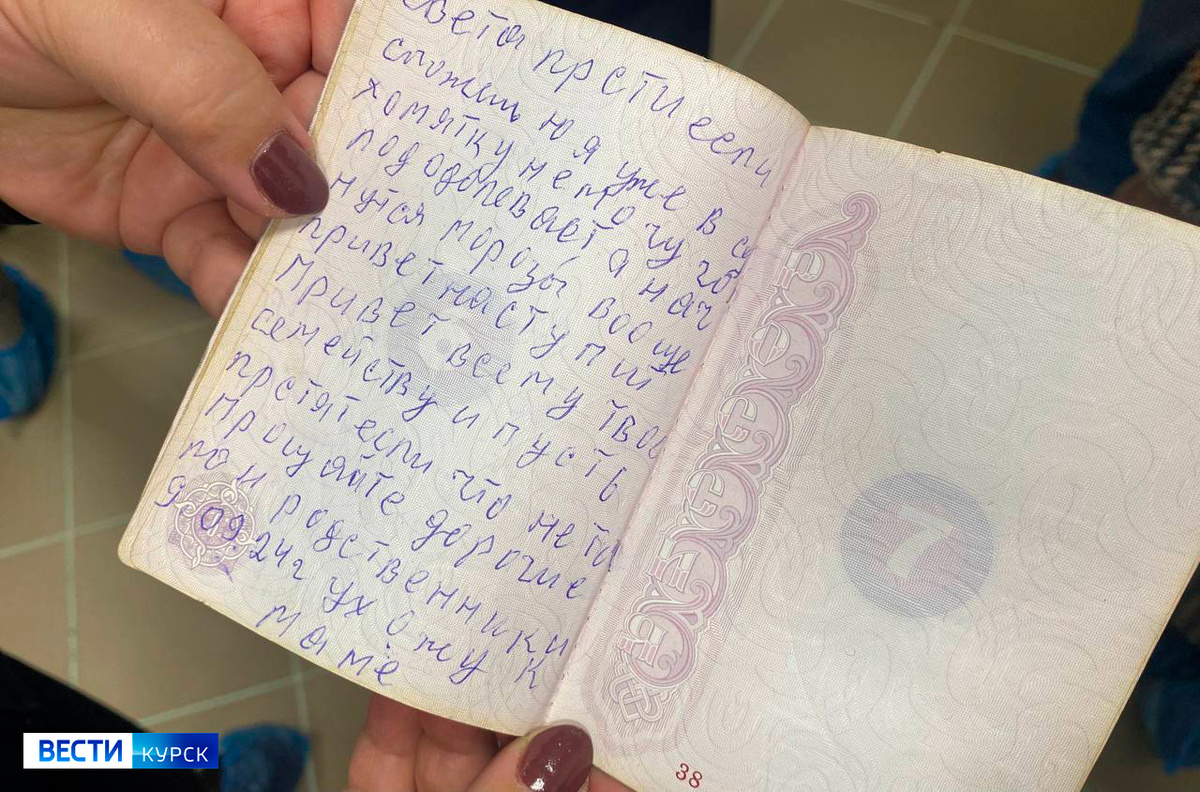 Света прсти если
сможеш ю я уже в
хомятку не го
подолевает а нач
нутся морозы вооще
привет наступит
Привет всему твое
семейству и пусть
прстят если что не
Прощяйте дорогие
родственники
9.09.24г ухожу к
маме
7
38
ВЕСТИ КУРСК